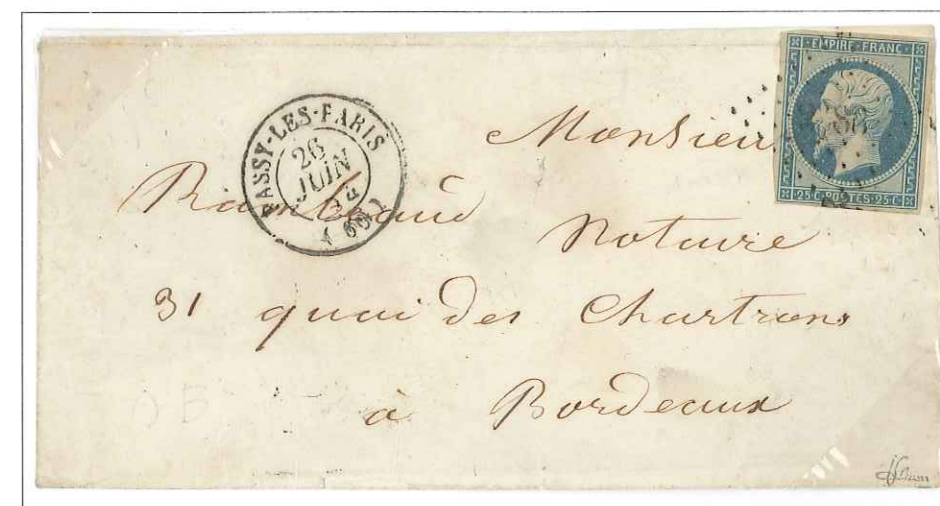 EMPIRE-FRANC
25·C·POSTES·25·C
PASSY-LES-PARIS
26
JUIN
54
(60)
Monsieur
Raimbeaud
Notaire
31 quai des Chartrons
à Bordeaux